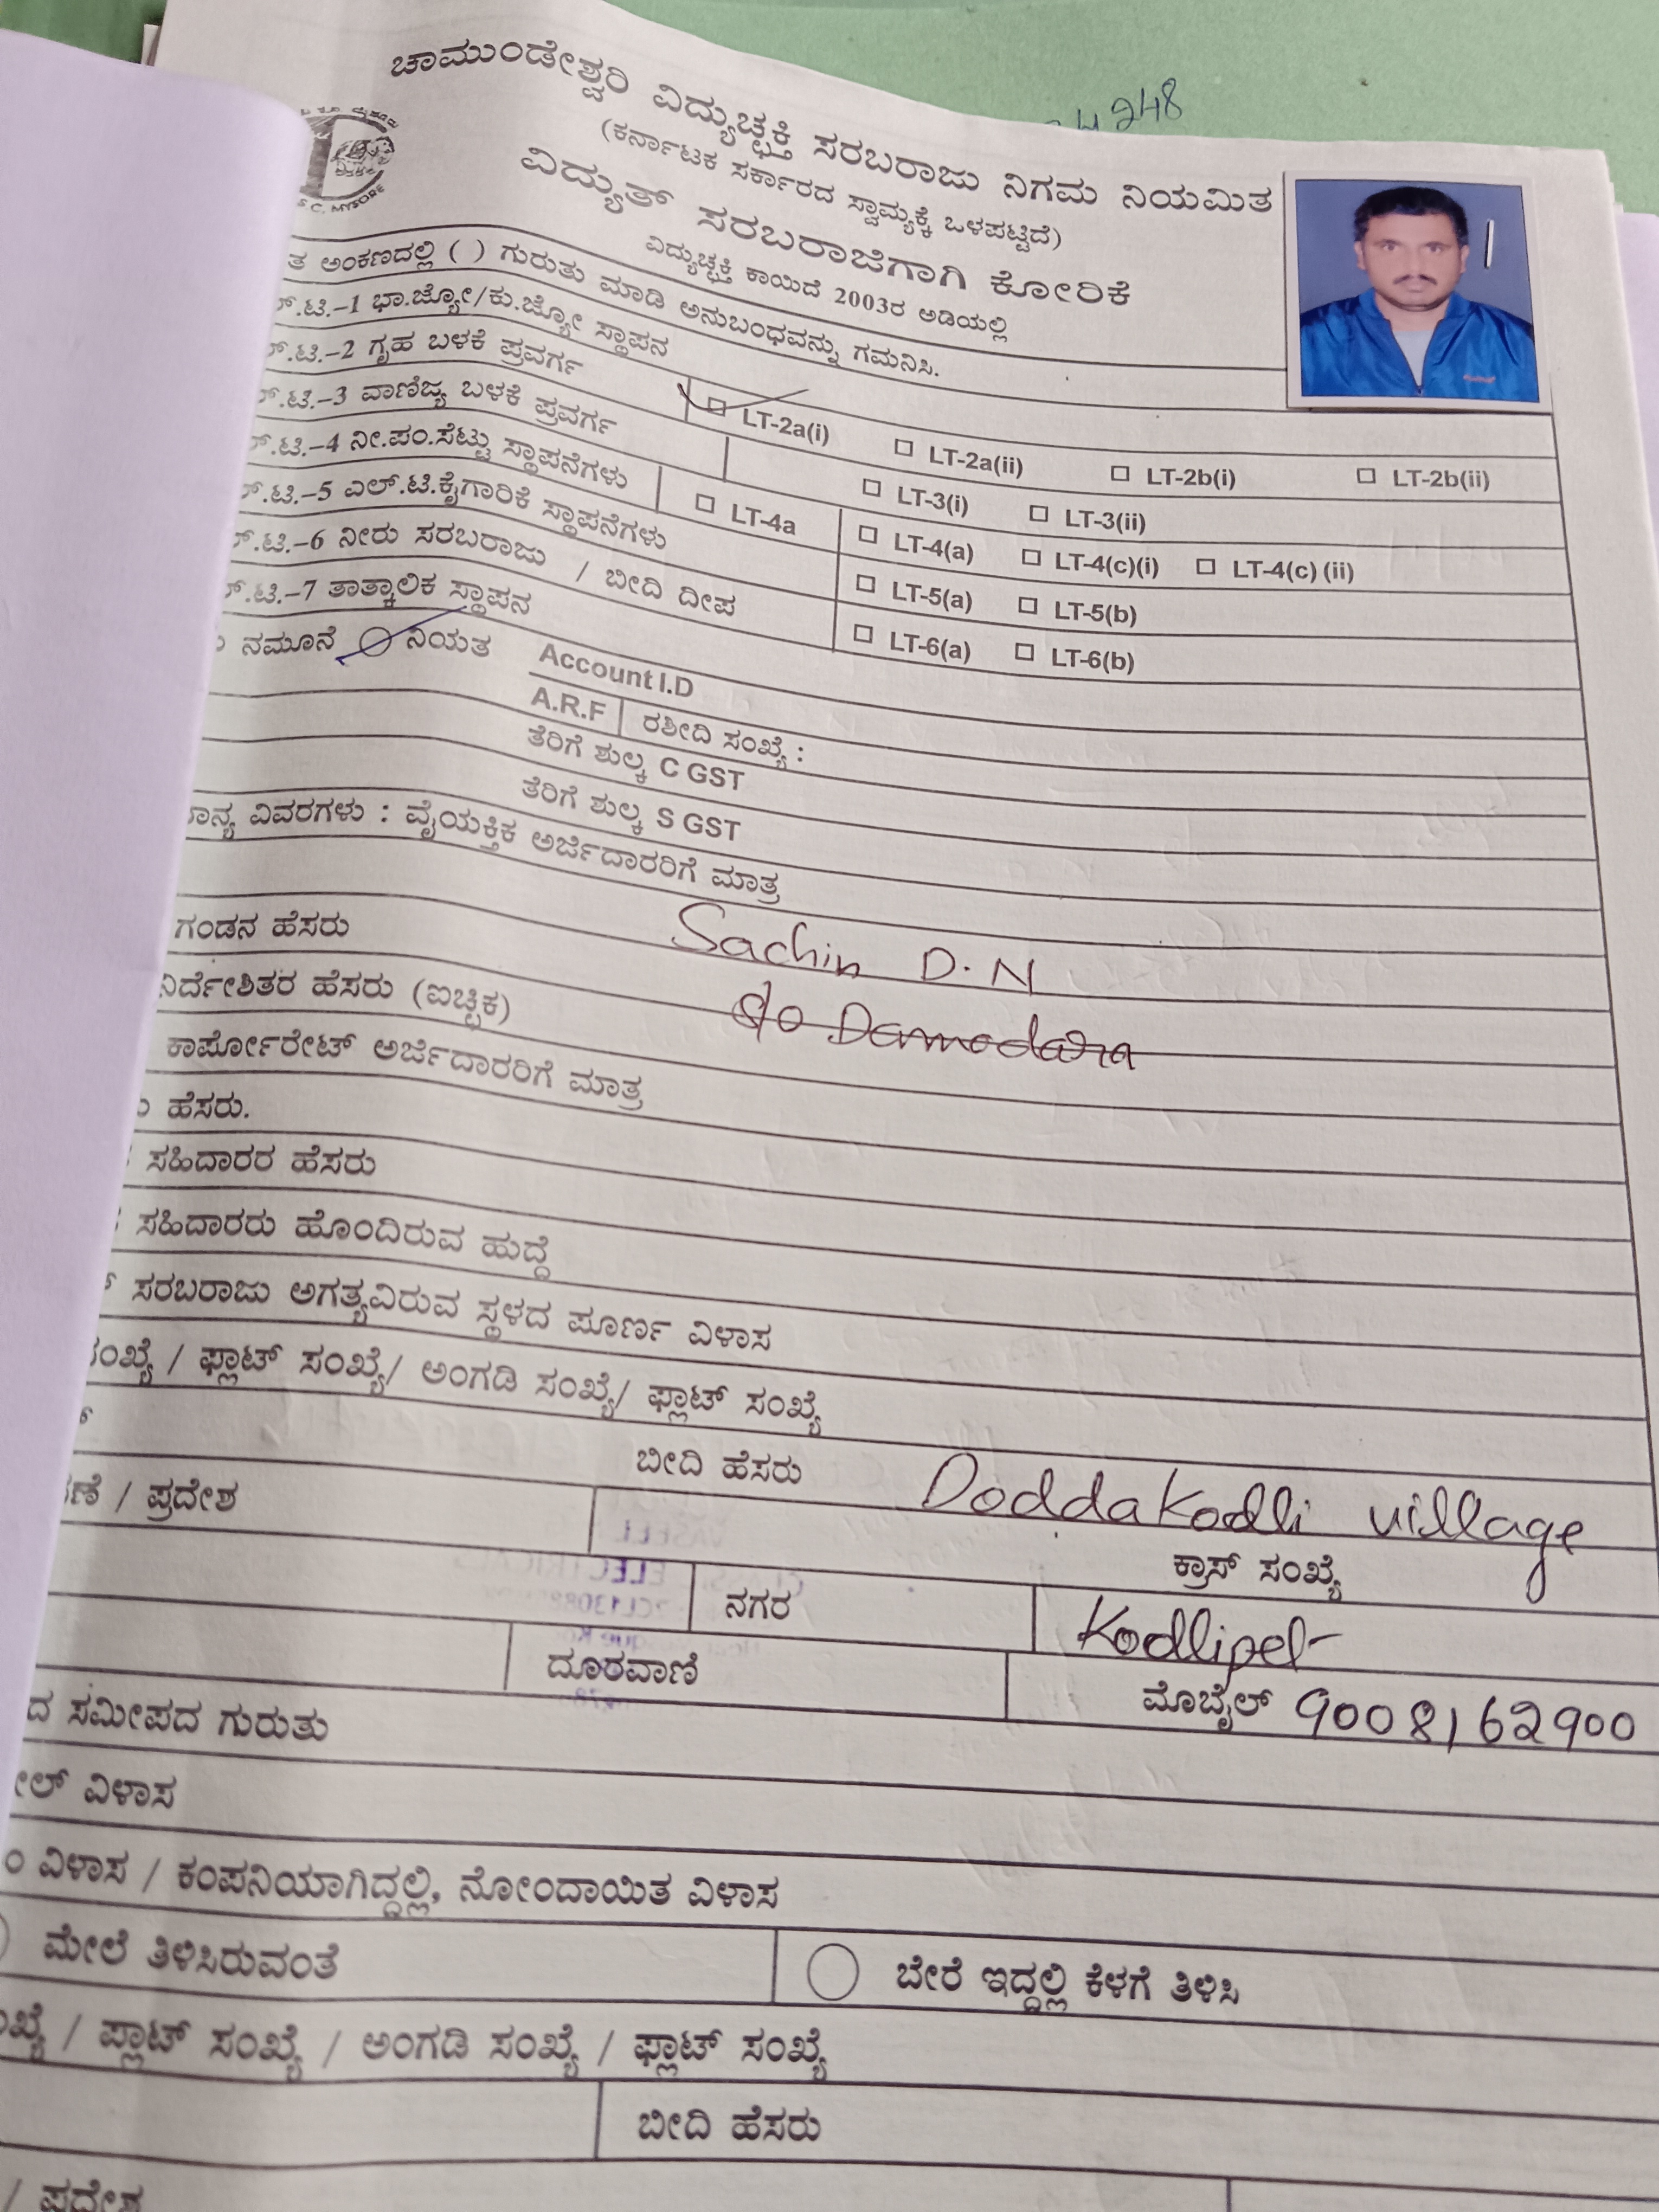 248
ಚಾಮುಂಡೇಶ್ವರಿ ವಿದ್ಯುಚ್ಛಕ್ತಿ ಸರಬರಾಜು ನಿಗಮ ನಿಯಮಿತ
(ಕರ್ನಾಟಕ ಸರ್ಕಾರದ ಸ್ವಾಮ್ಯಕ್ಕೆ ಒಳಪಟ್ಟಿದೆ)
MYSORE
ವಿದ್ಯುತ್ ಸರಬರಾಜಿಗಾಗಿ ಕೋರಿಕೆ
ವಿದ್ಯುಚ್ಛಕ್ತಿ ಕಾಯಿದೆ 2003ರ ಅಡಿಯಲ್ಲಿ
ತ ಅಂಕಣದಲ್ಲಿ ( ) ಗುರುತು ಮಾಡಿ ಅನುಬಂಧವನ್ನು ಗಮನಿಸಿ.
.ಟಿ.-1 ಭಾ.ಜ್ಯೋ/ಕು.ಜ್ಯೋ ಸ್ಥಾಪನ
.ಟಿ.-2 ಗೃಹ ಬಳಕೆ ಪ್ರವರ್ಗ LT-2a(i) LT-2a(ii) LT-2b(i) LT-2b(ii)
.ಟಿ.-3 ವಾಣಿಜ್ಯ ಬಳಕೆ ಪ್ರವರ್ಗ LT-3(i) LT-3(ii)
.ಟಿ.-4 ನೀ.ಪಂ.ಸೆಟ್ಟು ಸ್ಥಾಪನೆಗಳು LT-4a LT-4(a) LT-4(c)(i) LT-4(c) (ii)
.ಟಿ.-5 ಎಲ್.ಟಿ.ಕೈಗಾರಿಕೆ ಸ್ಥಾಪನೆಗಳು LT-5(a) LT-5(b)
.ಟಿ.-6 ನೀರು ಸರಬರಾಜು / ಬೀದಿ ದೀಪ LT-6(a) LT-6(b)
.ಟಿ.-7 ತಾತ್ಕಾಲಿಕ ಸ್ಥಾಪನ
ನಮೂನೆ ನಿಯತ Account I.D
A.R.F ರಶೀದಿ ಸಂಖ್ಯೆ :
ತೆರಿಗೆ ಶುಲ್ಕ C GST
ತೆರಿಗೆ ಶುಲ್ಕ S GST
ವಿವರಗಳು : ವೈಯಕ್ತಿಕ ಅರ್ಜಿದಾರರಿಗೆ ಮಾತ್ರ
Sachin D.N
ಗಂಡನ ಹೆಸರು S/o Damodara
ನಿರ್ದೇಶಿತರ ಹೆಸರು (ಐಚ್ಛಿಕ)
ಕಾರ್ಪೋರೇಟ್ ಅರ್ಜಿದಾರರಿಗೆ ಮಾತ್ರ
ಹೆಸರು.
ಸಹಿದಾರರ ಹೆಸರು
ಸಹಿದಾರರು ಹೊಂದಿರುವ ಹುದ್ದೆ
ಸರಬರಾಜು ಅಗತ್ಯವಿರುವ ಸ್ಥಳದ ಪೂರ್ಣ ವಿಳಾಸ
ಸಂಖ್ಯೆ / ಫ್ಲಾಟ್ ಸಂಖ್ಯೆ/ ಅಂಗಡಿ ಸಂಖ್ಯೆ/ ಫ್ಲಾಟ್ ಸಂಖ್ಯೆ
ಬೀದಿ ಹೆಸರು Doddakodli village
/ ಪ್ರದೇಶ ಕ್ರಾಸ್ ಸಂಖ್ಯೆ
ನಗರ Kodlipet
ದೂರವಾಣಿ ಮೊಬೈಲ್ 9008162900
ದ ಸಮೀಪದ ಗುರುತು
ವಿಳಾಸ
ವಿಳಾಸ / ಕಂಪನಿಯಾಗಿದ್ದಲ್ಲಿ, ನೋಂದಾಯಿತ ವಿಳಾಸ
ಮೇಲೆ ತಿಳಿಸಿರುವಂತೆ ಬೇರೆ ಇದ್ದಲ್ಲಿ ಕೆಳಗೆ ತಿಳಿಸಿ
/ ಪ್ಲಾಟ್ ಸಂಖ್ಯೆ / ಅಂಗಡಿ ಸಂಖ್ಯೆ / ಫ್ಲಾಟ್ ಸಂಖ್ಯೆ
ಬೀದಿ ಹೆಸರು
/ ಪ್ರದೇಶ